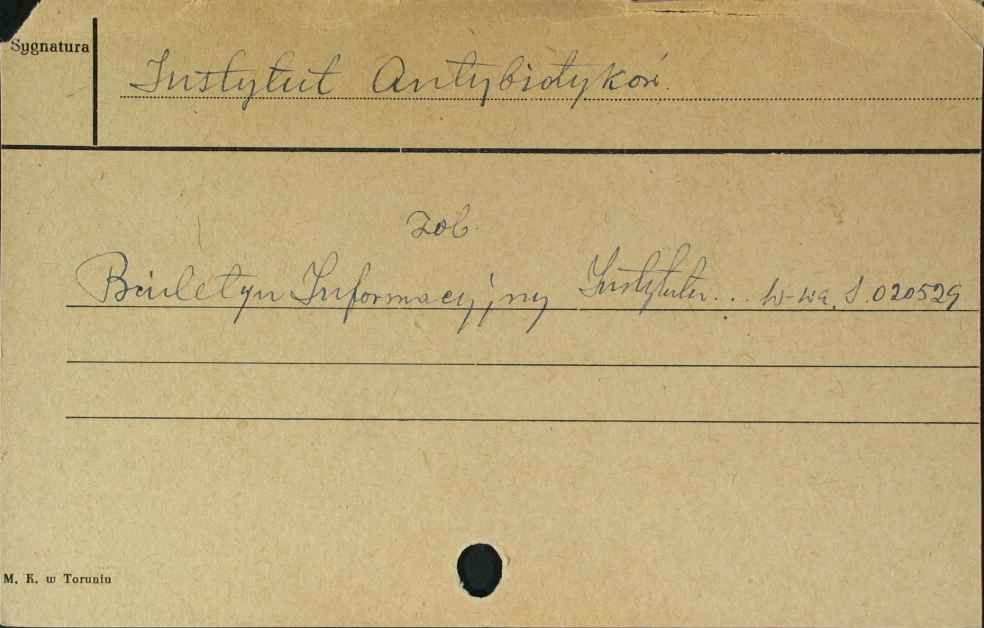 Sygnatura
Instytut Antybiotyków.
zob.
Biuletyn Informacyjny Instytutu... W-wa. S. 020529
M. K. w Toruniu